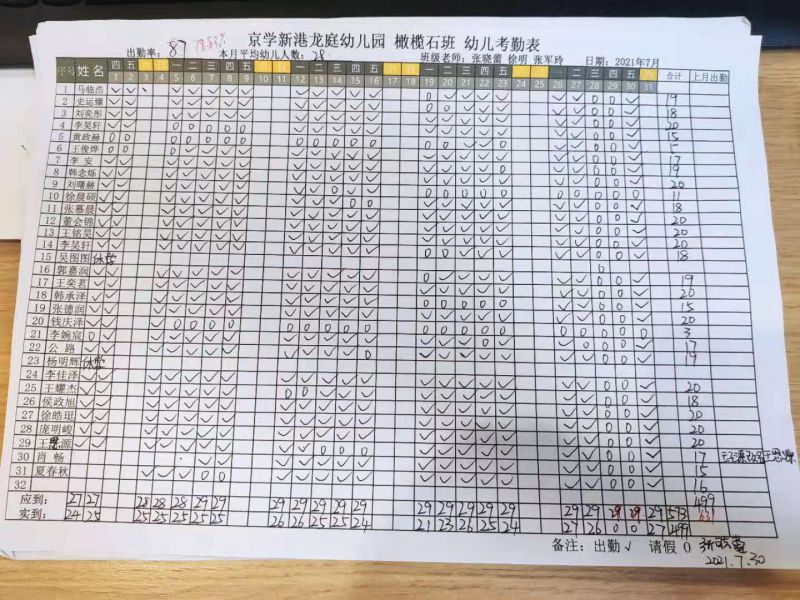 京学新港龙庭幼儿园 橄榄石班 幼儿考勤表
出勤率：87 78.83%
本月平均幼儿人数：28
班级老师：张晓蕾 徐明 张军玲
日期：2021年7月
序号 姓名 四 五 六 日 一 二 三 四 五 六 日 一 二 三 四 五 六 日 一 二 三 四 五 六 日 一 二 三 四 五 六 合计 上月出勤
1 2 3 4 5 6 7 8 9 10 11 12 13 14 15 16 17 18 19 20 21 22 23 24 25 26 27 28 29 30 31
1 马临浩 19
2 史运臻 18
3 刘奕彤 20
4 李昊轩 15
5 黄政赫 5
6 王俊烨 17
7 李安 19
8 韩念烁 20
9 刘曙赫 11
10 徐晨硕 18
11 张慕晨 20
12 董会锦 20
13 王铭昊 20
14 李昊轩 18
15 吴图图 休学
16 郭嘉润 19
17 王奕茗 20
18 韩承泽 15
19 张德润 20
20 钱庆泽 3
21 李婉宸 17
22 公路 19
23 杨明辉 休学
24 李佳泽 20
25 王耀杰 18
26 侯政旭 20
27 徐皓珽 20
28 庞明峻 20
29 王思源 17
30 肖畅 15
31 夏春秋 16
32 499
应到：27 27 28 28 28 29 29 29 29 29 29 29 29 29 29 29 29 29 29 29 29 29 573 631
实到：24 25 25 25 25 25 25 26 26 25 25 24 21 23 26 25 24 27 26 0 0 27 499
备注：出勤 √ 请假 0
2021.7.30